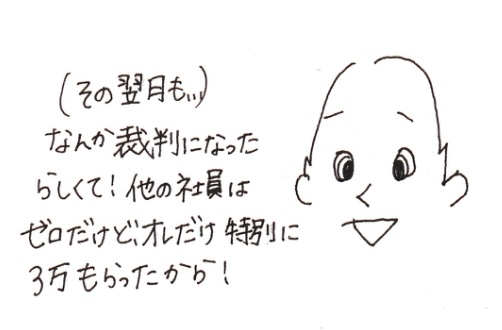 (その翌月も…)
なんか裁判になった
らしくて！他の社員は
ゼロだけど、オレだけ特別に
3万もらったから！